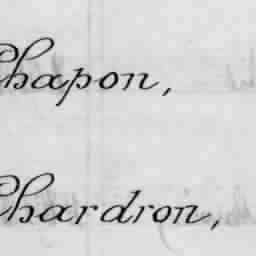 Chapon,
Chardron,